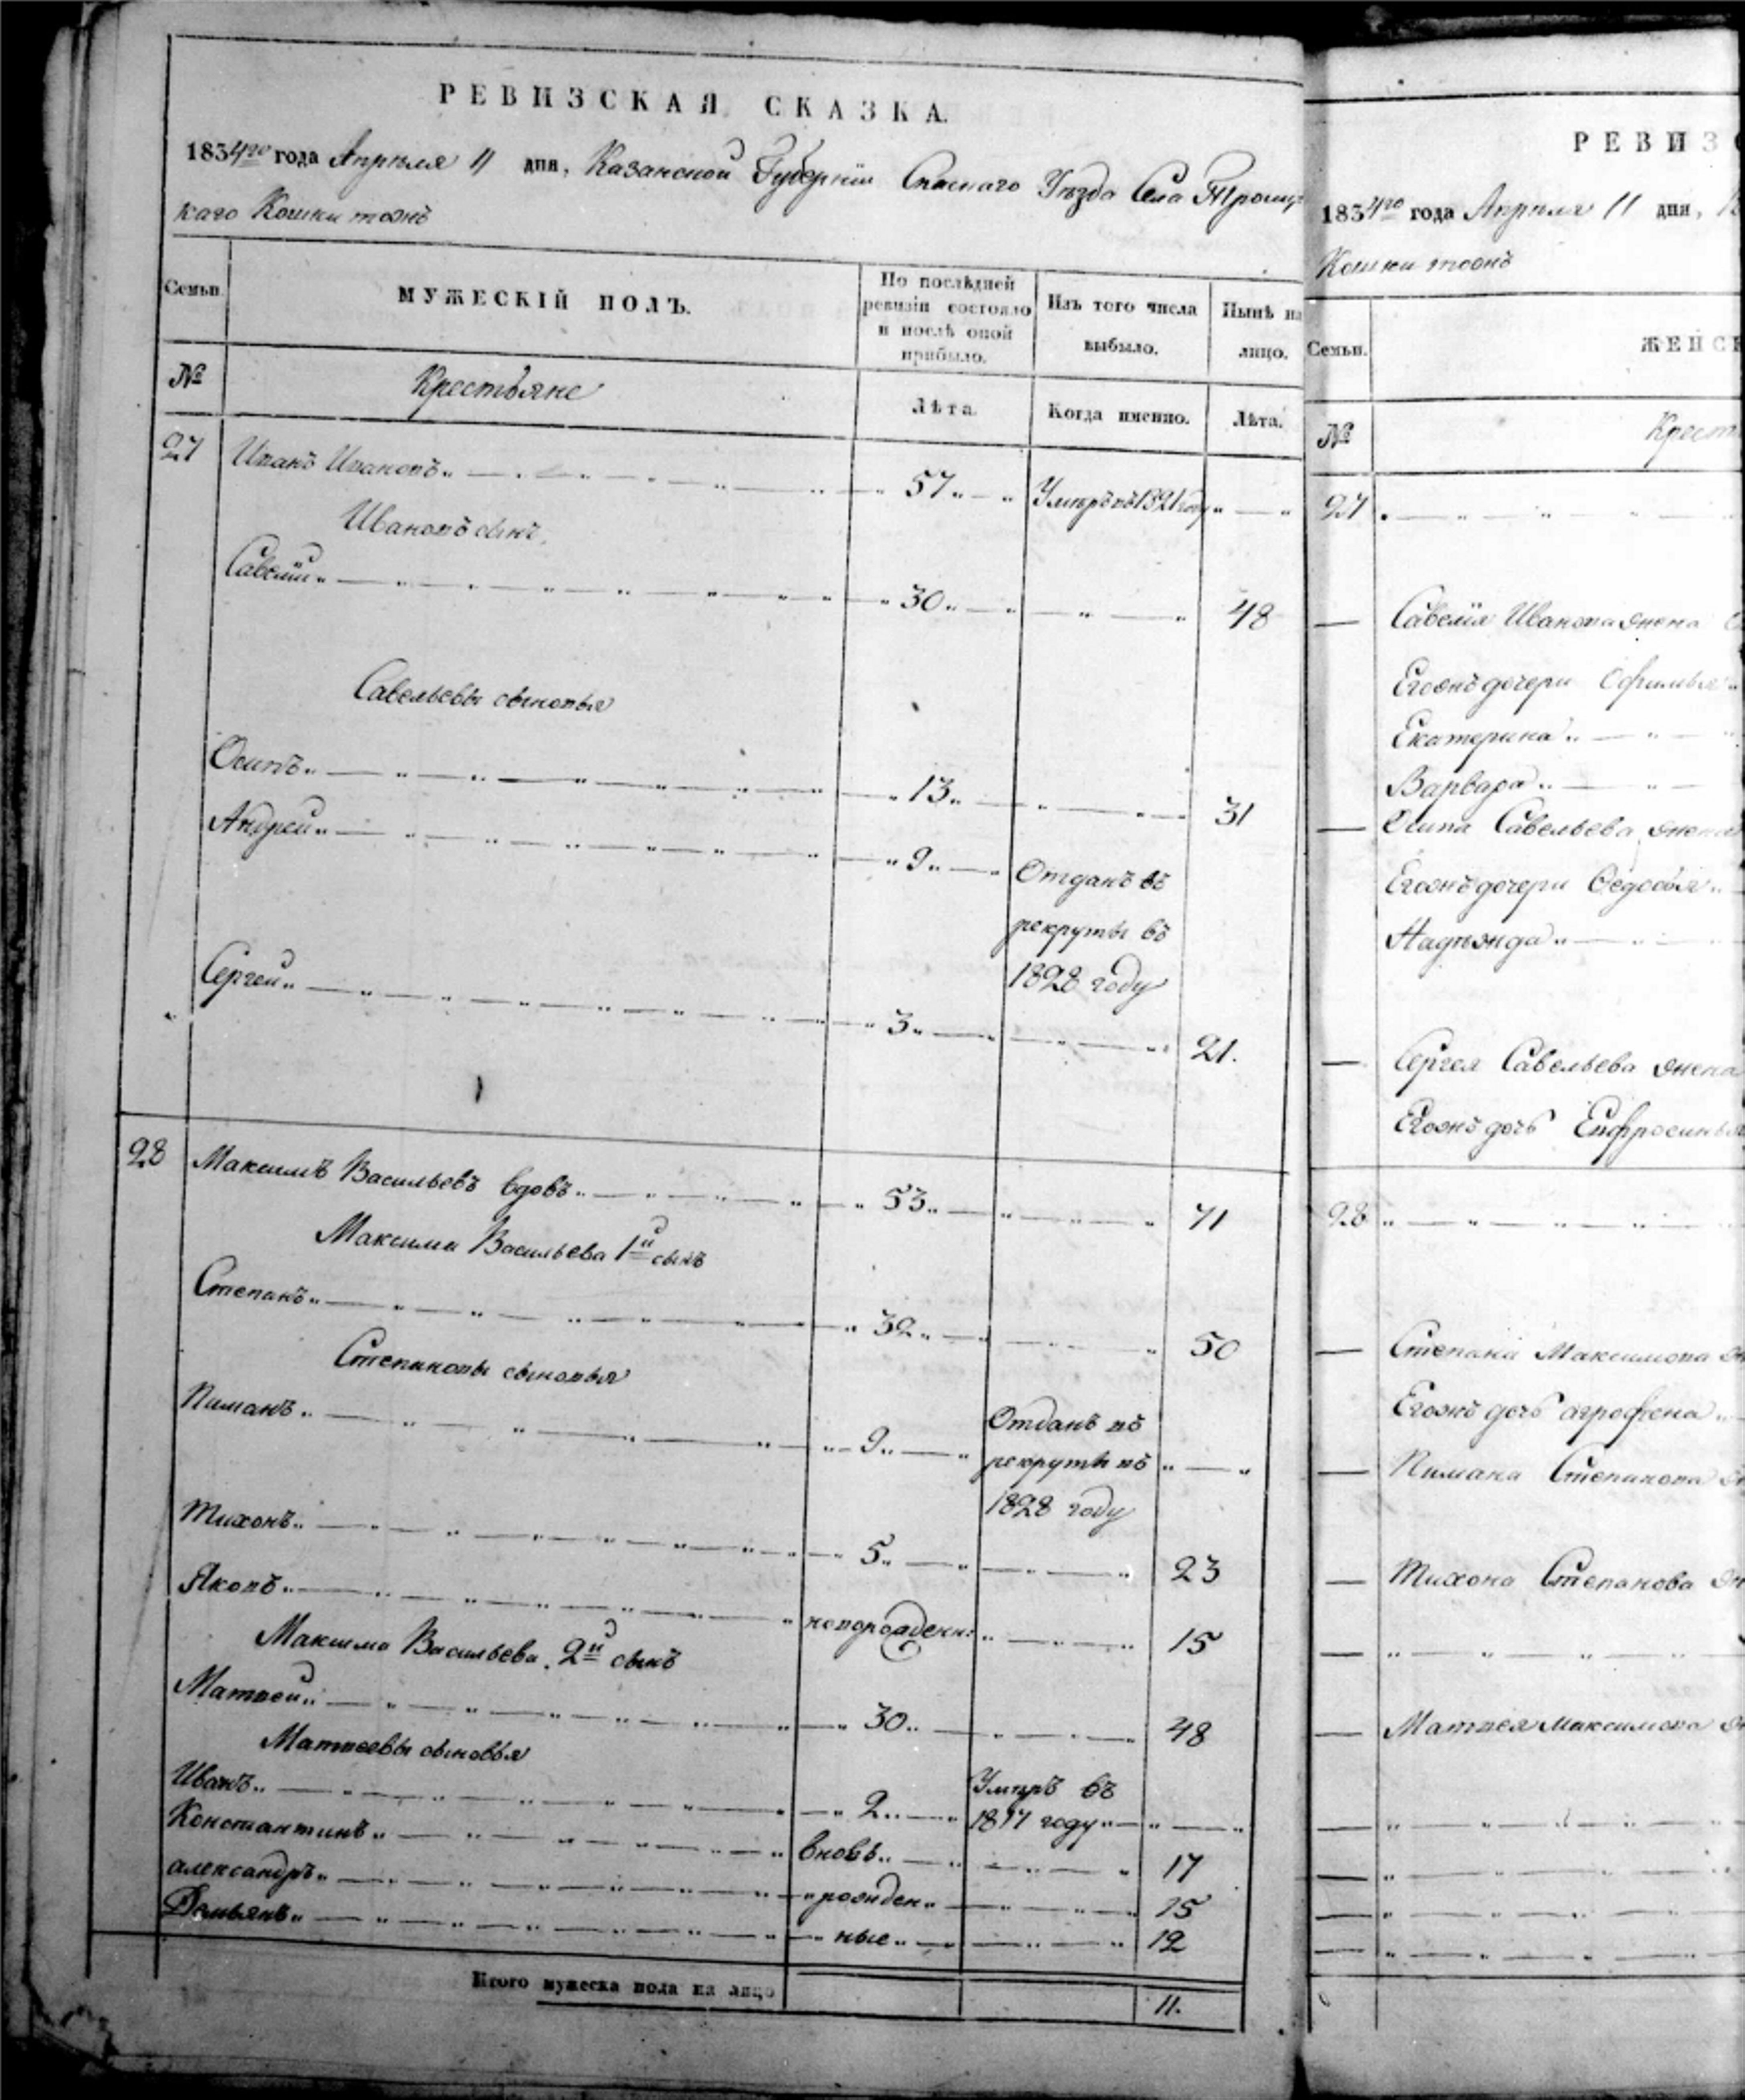 РЕВИЗСКАЯ СКАЗКА.
1834го года Апреля 11 дня, Казанской Губернiи Спаскаго Уезда Села Троиц
каго Кошки тожъ
Семьи.
МУЖЕСКIЙ ПОЛЪ.
По послѣдней ревизiи состояло и послѣ оной прибыло.
Изъ того числа выбыло.
Нынѣ на лицо.
№ Крестьяне Лѣта. Когда именно. Лѣта.
27 Иванъ Ивановъ 57 Умеръ въ 1821 году
Ивановъ сынъ
Савелiй 30 48
Савельевы сыновья
Осипъ 13 31
Андрей 9 Отданъ въ
рекруты въ
1828 году
Сергей 3 21.
28 Максимъ Васильевъ вдовъ 53 71
Максима Васильева 1й сынъ
Степанъ 32 50
Степановы сыновья
Пиманъ 9 Отданъ въ
рекруты въ
1828 году
Тихонъ 5 23
Яковъ новорожден: 15
Максима Васильева 2й сынъ
Матвей 30 48
Матвеевы сыновья
Иванъ 2 Умеръ въ
1817 году
Константинъ вновь 17
александръ рожден 15
Демьянъ ные 12
Итого мужеска пола на лицо 11.
РЕВИЗ
1834го года Апреля 11 дня,
Кошки тожъ
Семьи.
ЖЕНСК
№ Крест
27
Савелiя Иванова жена
Егожъ дочери Офимья
Екатерина
Варвара
Осипа Савельева жена
Егожъ дочери Федосья
Надежда
Сергея Савельева жена
Егожъ дочь Ефросинья
28
Степана Максимова
Егожъ дочь агрофена
Пимана Степанова
Тихона Степанова
Матвея Максимова